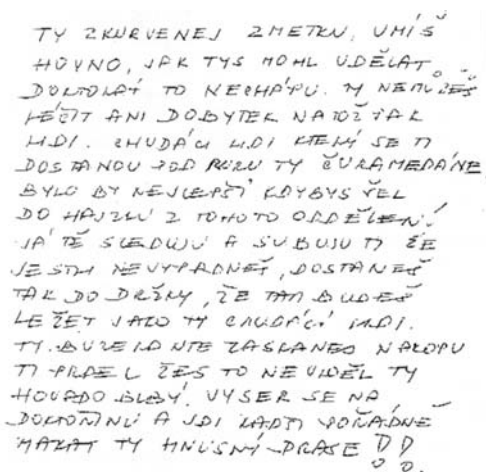 TY ZKURVENEJ ZMETKU, UMÍŠ
HOVNO, JAK TYS MOHL UDĚLAT
DOKTORÁT TO NECHÁPU. TY NEMŮŽEŠ
LÉČIT ANI DOBYTEK NATOŽ PAK
LIDI. CHUDÁCI LIDI KTERÝ SE TI
DOSTANOU POD RUKU TY ČURAMEDÁINE
BYLO BY NEJLEPŠÍ KDYBYS ŠEL
DO HAJZLU Z TOHOTO ODDĚLENÍ!
JÁ TĚ SLEDUJU A SLIBUJU TI ŽE
JESTLI NEVYPADNEŠ, DOSTANEŠ
TAK DO DRŽKY, ŽE TAM BUDEŠ
LEŽET JAKO TY CHUDÁCI LIDI.
TY BUZERANTE ZASRANEJ NAKOPU
TI PRDEL ŽES TO NEVIDĚL TY
HOVADO BLBÝ. VYSER SE NA
DOKTOŘINU A JDI RADŠI POŘÁDNĚ
MAKAT TY HNUSNÝ PRASE!!